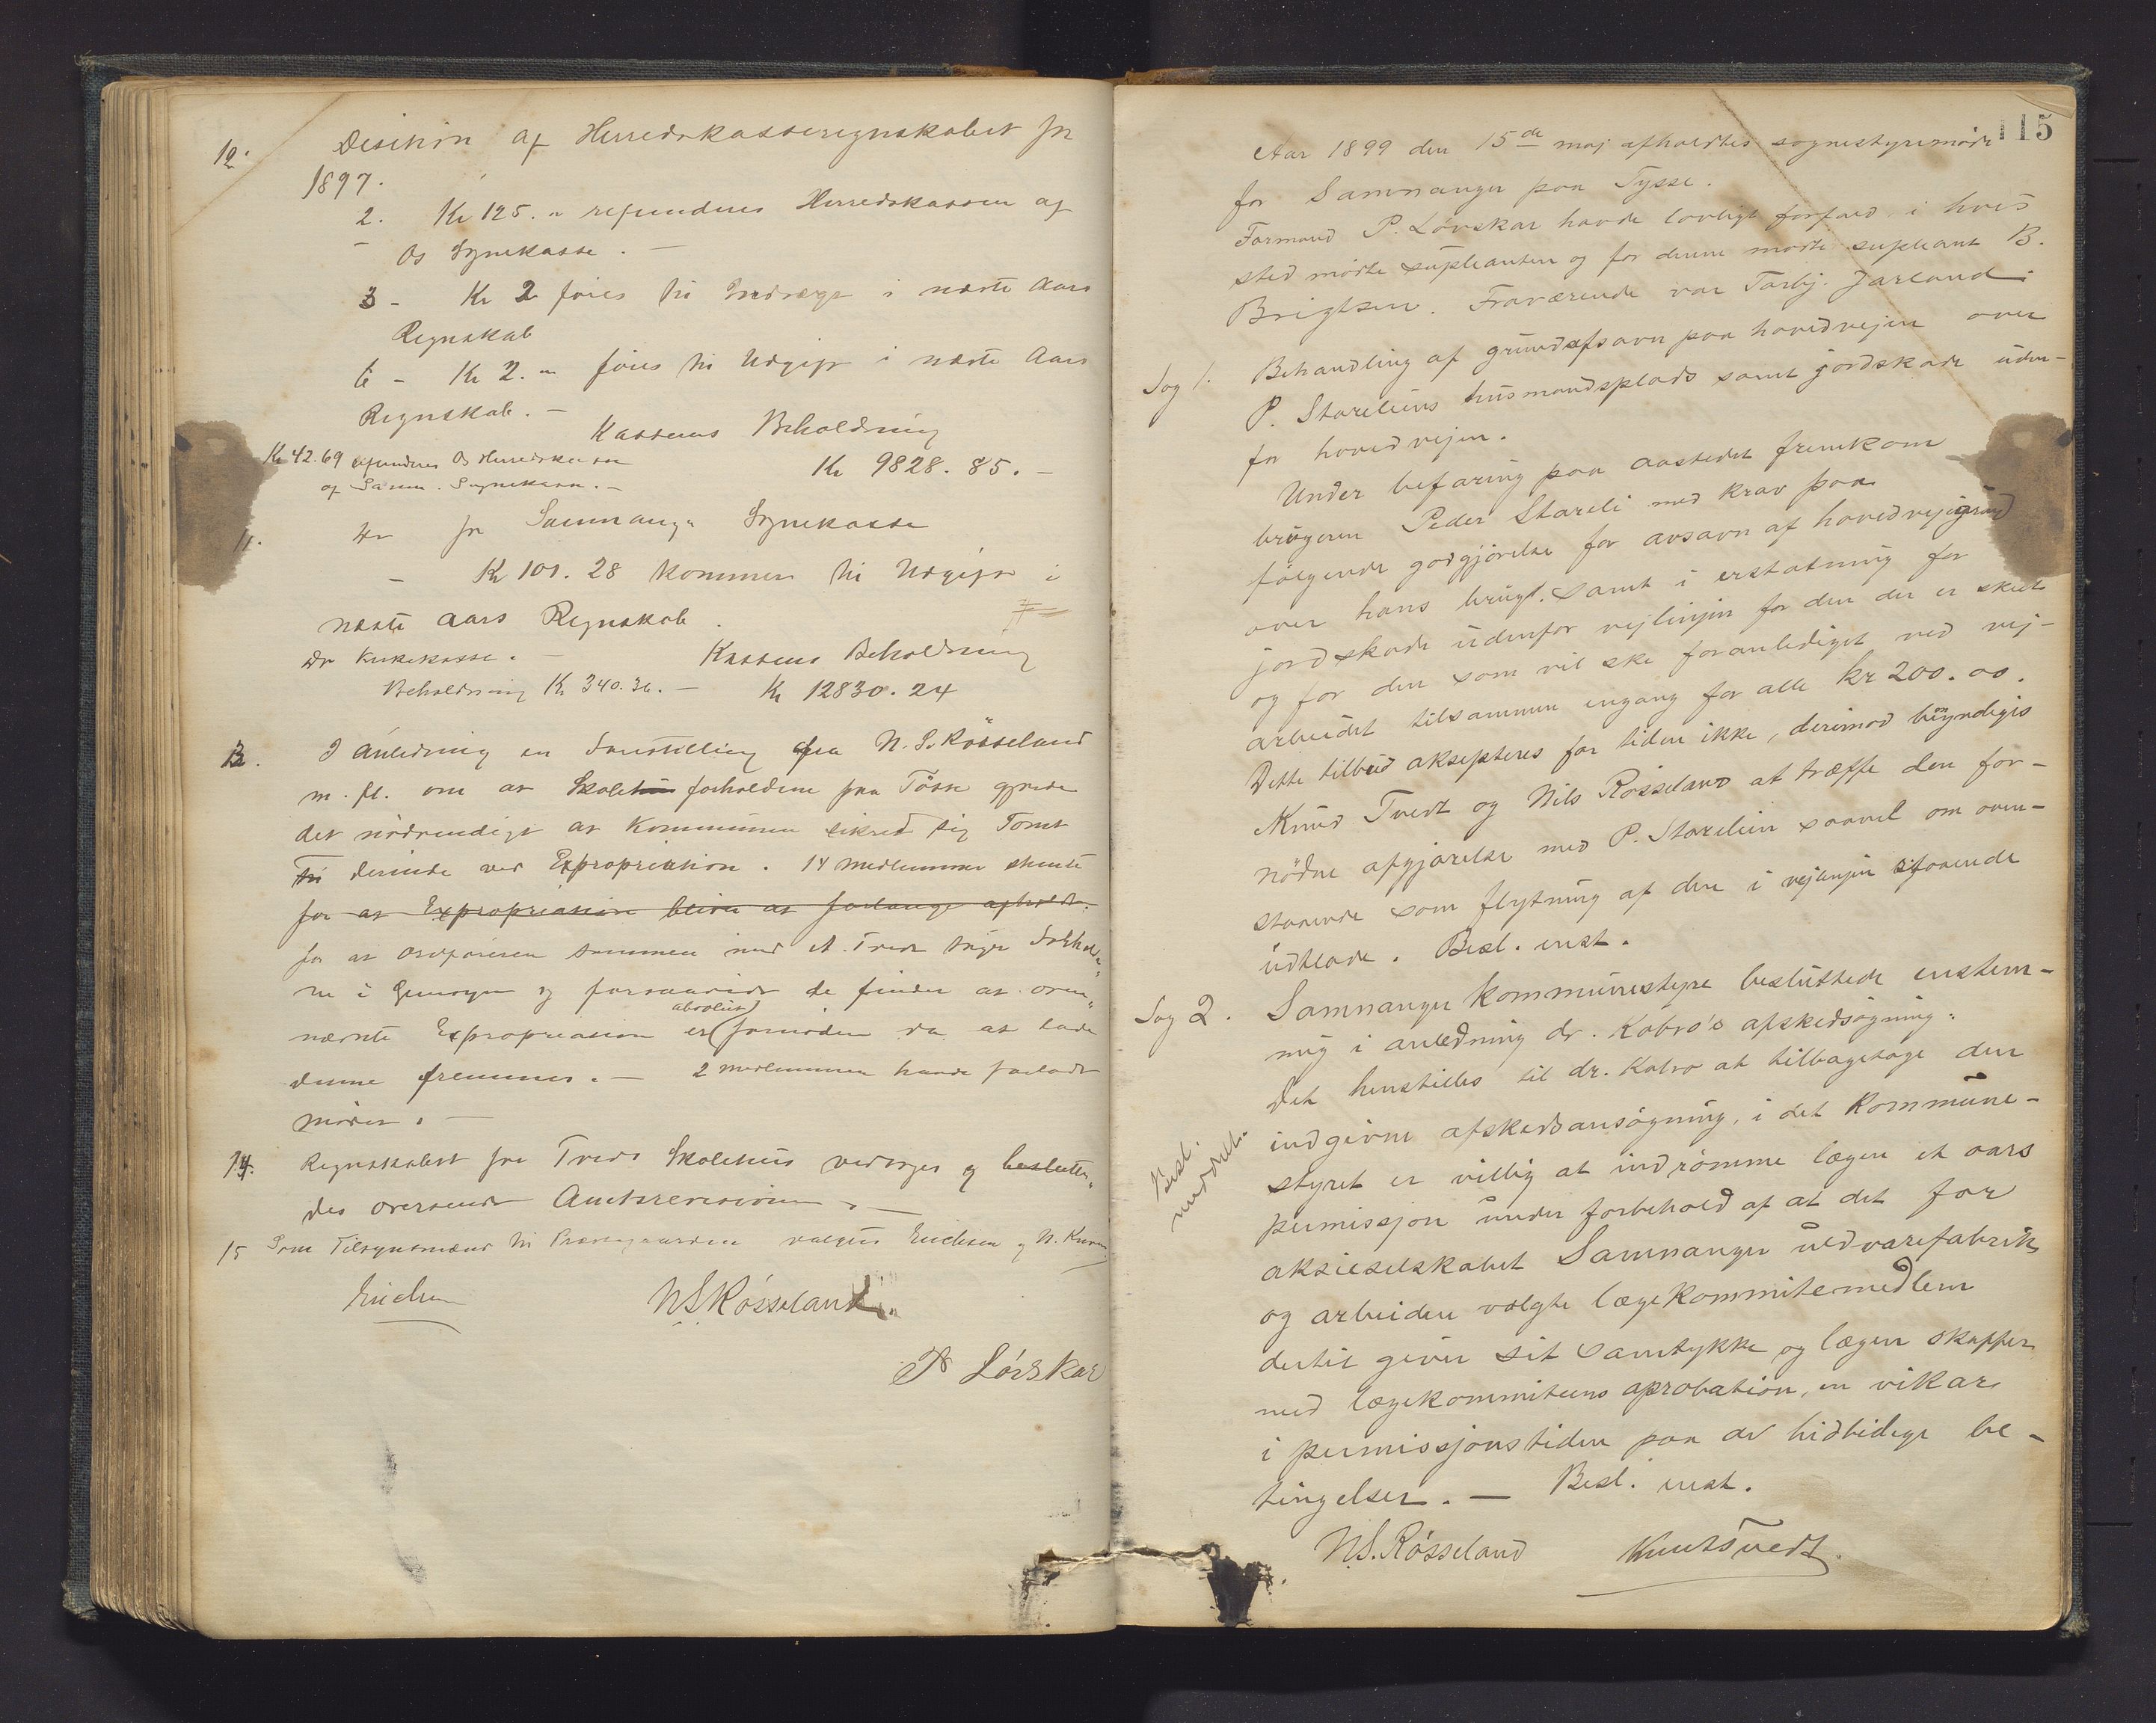 12. Desision af Herredskasseregnskabet for
1897.
2. Kr 125. " refunderes Herredskassen af
Os Sognekasse. —
3 - Kr 2 føres til Indtægt i næste Aars
Regnskab
6 - Kr 2. " føres til Udgift i næste Aars
Regnskab. —
Kassens Beholdning
Kr 42.69 refunderes Os Herredskasse
Kr 9828. 85. -
af Samn. Sognekasse. —
11. Do for Samnanger Sognekasse
- Kr 101. 28 kommer til Udgift i
næste Aars Regnskab.
Do Kirkekasse. —
Kassens Beholdning
Beholdning Kr 340.36. — Kr 12830. 24
13. I Anledning en Forestilling fra N. S. Røsseland
m. fl. om at Skole forholdene paa Tøsse gjorde
det nødvendigt at Kommunen sikred sig Tomt
til derinde ved Expropriation. 14 medlemmer stemte
for at Expropriation bliver at forlange afholdt.
for at Ordføreren sammen med K. Tvedt tager Forholde„
ne i Øiesyn og forsaavidt de finder at oven„
nævnte Expropriation er (absolut) fornøden da at lade
denne fremmes. — 2 medlemmer havde forladt
mødet. —
14. Regnskabet for Tvedt Skolehus vedtoges og beslutte„
des oversendt Amtsrevisionen. —
15 Som Tilsynsmænd til Præstegaarden valgtes Erichsen og N.
Erichsen N S Røsseland.
P Lövskar
115
Aar 1899 den 15de maj afholdtes sognestyremøde
for Samnanger paa Tysse.
Formand P. Lövskar havde lovligt forfald i hvis
sted mødte supleanten og for denne mødte supleant B.
Brigtsen. Fraværende var Torbj. Jarland.
Sag 1. Behandling af grundafsavn paa hovedveien over
P. Storeliens husmandsplads samt jordskade uden-
for hovedvejen.
Under befaring paa aastedet fremkom
brugeren Peder Storeli med krav paa
følgende godgjørelse for avsavn af hovedvejsgrund
over hans brug. samt i erstatning for
jordskade udenfor vejlinjen for den der er skeet
og for den som vil ske foranlediget ved vej-
arbeidet tilsammen engang for alle kr 200. 00.
Dette tilbud aksepteres for tiden ikke, derimod bemyndiges
Knud Tvedt og Nils Røsseland at træffe den for-
nødne afgjørelse med P. Storelien saavel om oven-
staaende som flytning af den i vejlinjen staaende
udtlade. Besl. enst.
Sag 2. Samnanger kommunestyre besluttede enstem-
mig i anledning dr. Kobro's afskedsøgning:
Det henstilles til dr. Kobro at tilbagetage den
indgivne afskedsansøgning, i det Kommune-
Besl. meddelt.
styret er villig at indrømme lægen et aars
permissjon under forbehold af at det for
aksieselskabet Samnanger uldvarefabrik
og arbeiden valgte lægekommitemedlem
dertil giver sit samtykke og lægen skaffer
med lægekommiteens aprobation, en vikar
i permissjonstiden paa de hidtidige be-
tingelser. — Besl. enst.
N.S. Røsseland Knut Tvedt.